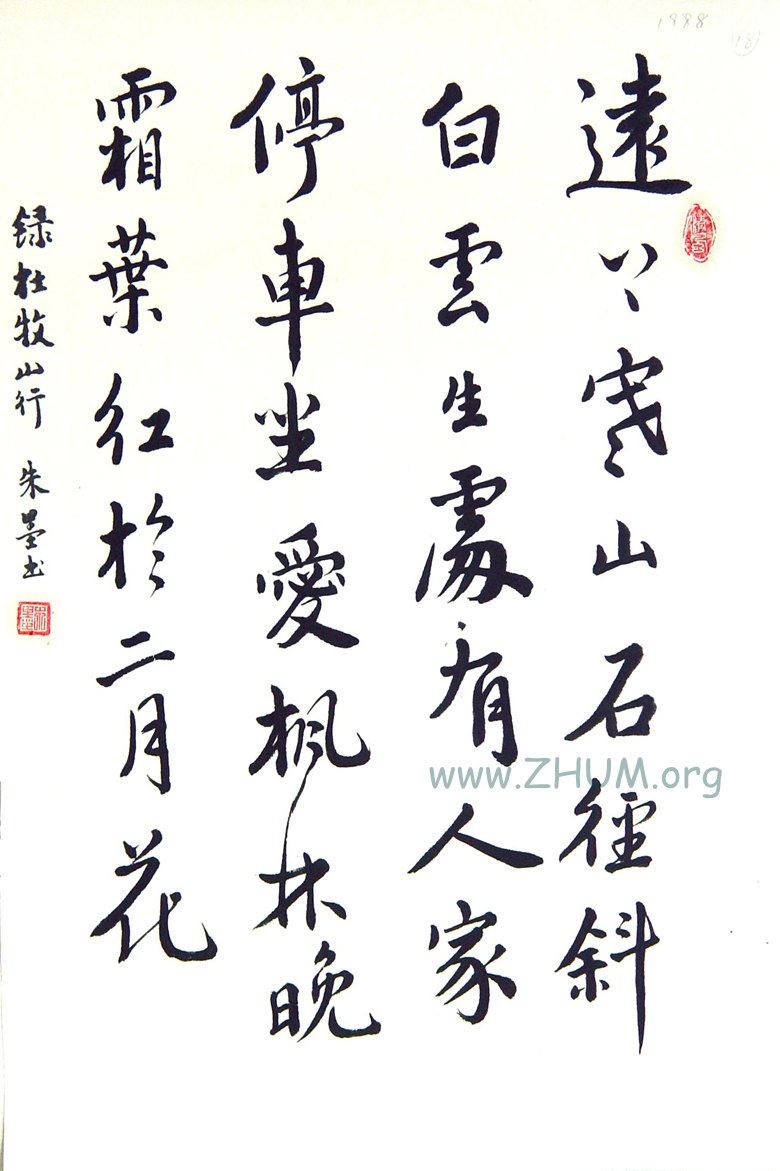 遠上寒山石徑斜
白雲生處有人家
停車坐愛楓林晚
霜葉紅於二月花
録杜牧山行 朱墨书
www.ZHUM.org
1988
(18)